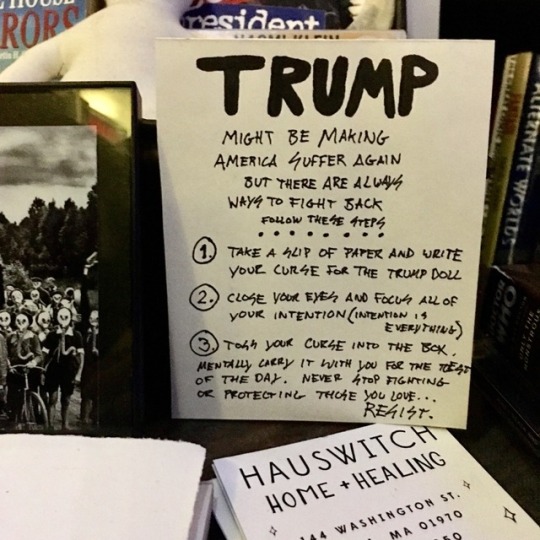 RORS
president
NAOMI KLEIN
TRUMP
MIGHT BE MAKING
AMERICA SUFFER AGAIN
BUT THERE ARE ALWAYS
WAYS TO FIGHT BACK
FOLLOW THESE STEPS
1. TAKE A SLIP OF PAPER AND WRITE
YOUR CURSE FOR THE TRUMP DOLL
2. CLOSE YOUR EYES AND FOCUS ALL OF
YOUR INTENTION (INTENTION IS
EVERYTHING)
3. TOSS YOUR CURSE INTO THE BOX.
MENTALLY CARRY IT WITH YOU FOR THE REST
OF THE DAY. NEVER STOP FIGHTING
OR PROTECTING THOSE YOU LOVE...
RESIST.
ALTERNATE WORLDS
HAUSWITCH
HOME + HEALING
144 WASHINGTON ST.
MA 01970